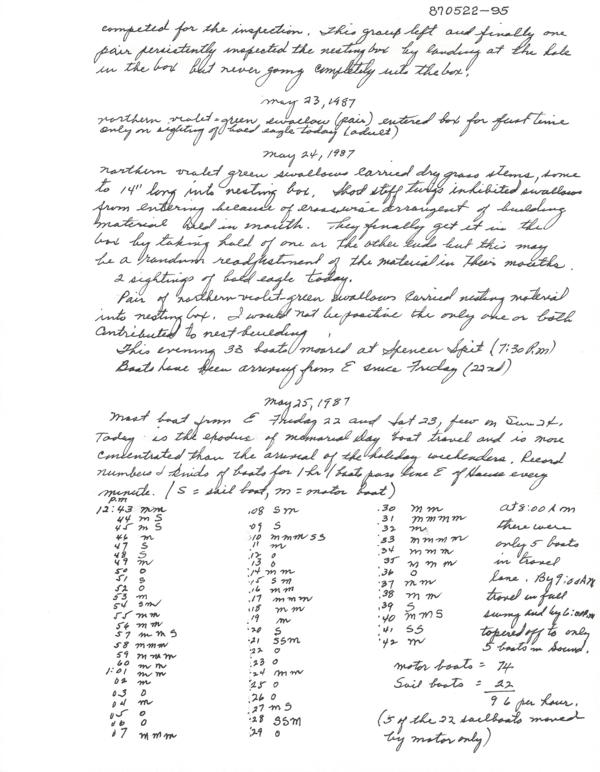 870522-95
competed for the inspection. This group left and finally one
pair persistently inspected the nesting box by landing at the hole
in the box but never going completely into the box.
may 23, 1987
northern violet-green swallow (pair) entered box for first time
only on sighting of bald eagle today (adult)
may 24, 1987
northern violet green swallows carried dry grass stems, some
to 14" long into nesting box. Short stiff twigs inhibited swallows
from entering because of crosswise arrangent of building
material held in mouth. They finally get it in the
box by taking hold of one or the other ends but this may
be a random readjustment of the material in their mouths.
2 sightings of bald eagle today.
Pair of northern violet-green swallows carried nesting material
into nesting box. I would not be positive the only one or both
contributed to nest building.
This evening 33 boats moored at Spencer Spit (7:30 P.m)
Boats have been arriving from E since Friday (22nd)
may 25, 1987
Most boat from E Friday 22 and Sat 23, few on Sun 24.
Today is the exodus of memorial day boat travel and is more
concentrated than the arrival of the holiday weekenders. Record
numbers & kinds of boats for 1 hr / boats pass line E of House every
minute. (S = sail boat, m = motor boat)
P.m
12:43 m m
44 m S
45 m S
46 m
47 S
48 S
49 m
50 0
51 S
52 0
53 m
54 S m
55 m m
56 m m
57 m m S
58 m m m
59 m m m
60 m m
1:01 m m
02 m
03 0
04 m
05 0
06 0
07 m m m
.08 S m
.09 S
.10 m m m S S
.11 m
.12 0
.13 0
.14 m m
.15 S m
.16 m m
.17 m m m
.18 m m
.19 m
.20 S
.21 S S m
.22 0
.23 0
.24 m m
.25 0
.26 0
.27 m S
.28 S S m
.29 0
.30 m m
.31 m m m m
.32 m
.33 m m m m
.34 m m m
.35 m m m
.36 0
.37 m m
.38 m m
.39 S
.40 m m S
.41 S S
.42 m
at 8:00 A m
there were
only 5 boats
in travel
lane. By 9:00 A m
travel in full
swing and by 6:00 P.m
tapered off to only
5 boats in Sound.
motor boats = 74
Sail boats = 22
96 per hour.
(5 of the 22 sailboats moved
by motor only)